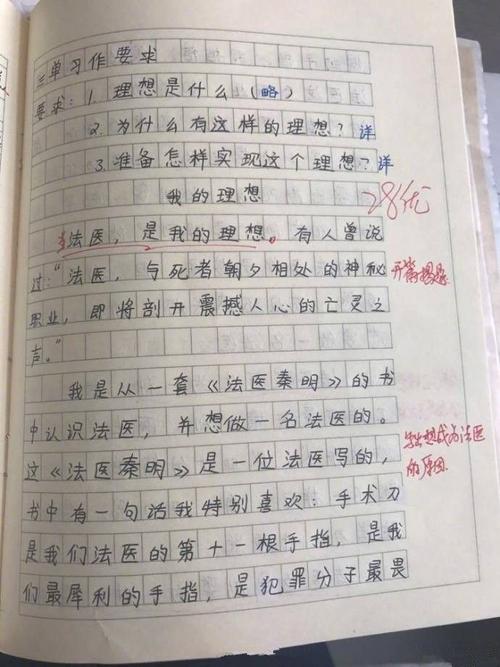 三单习作要求
要求：1. 理想是什么（略）
2. 为什么有这样的理想？详
3. 准备怎样实现这个理想？详
我的理想
28优
法医，是我的理想。有人曾说
过："法医，与死者朝夕相处的神秘
开篇揭题
职业，即将剖开震撼人心的亡灵之
声。"
我是从一套《法医秦明》的书
中认识法医，并想做一名法医的。
这《法医秦明》是一位法医写的，
写出想成为法医
的原因
书中有一句话我特别喜欢：手术刀
是我们法医的第十一根手指，是我
们最犀利的手指，是犯罪分子最畏